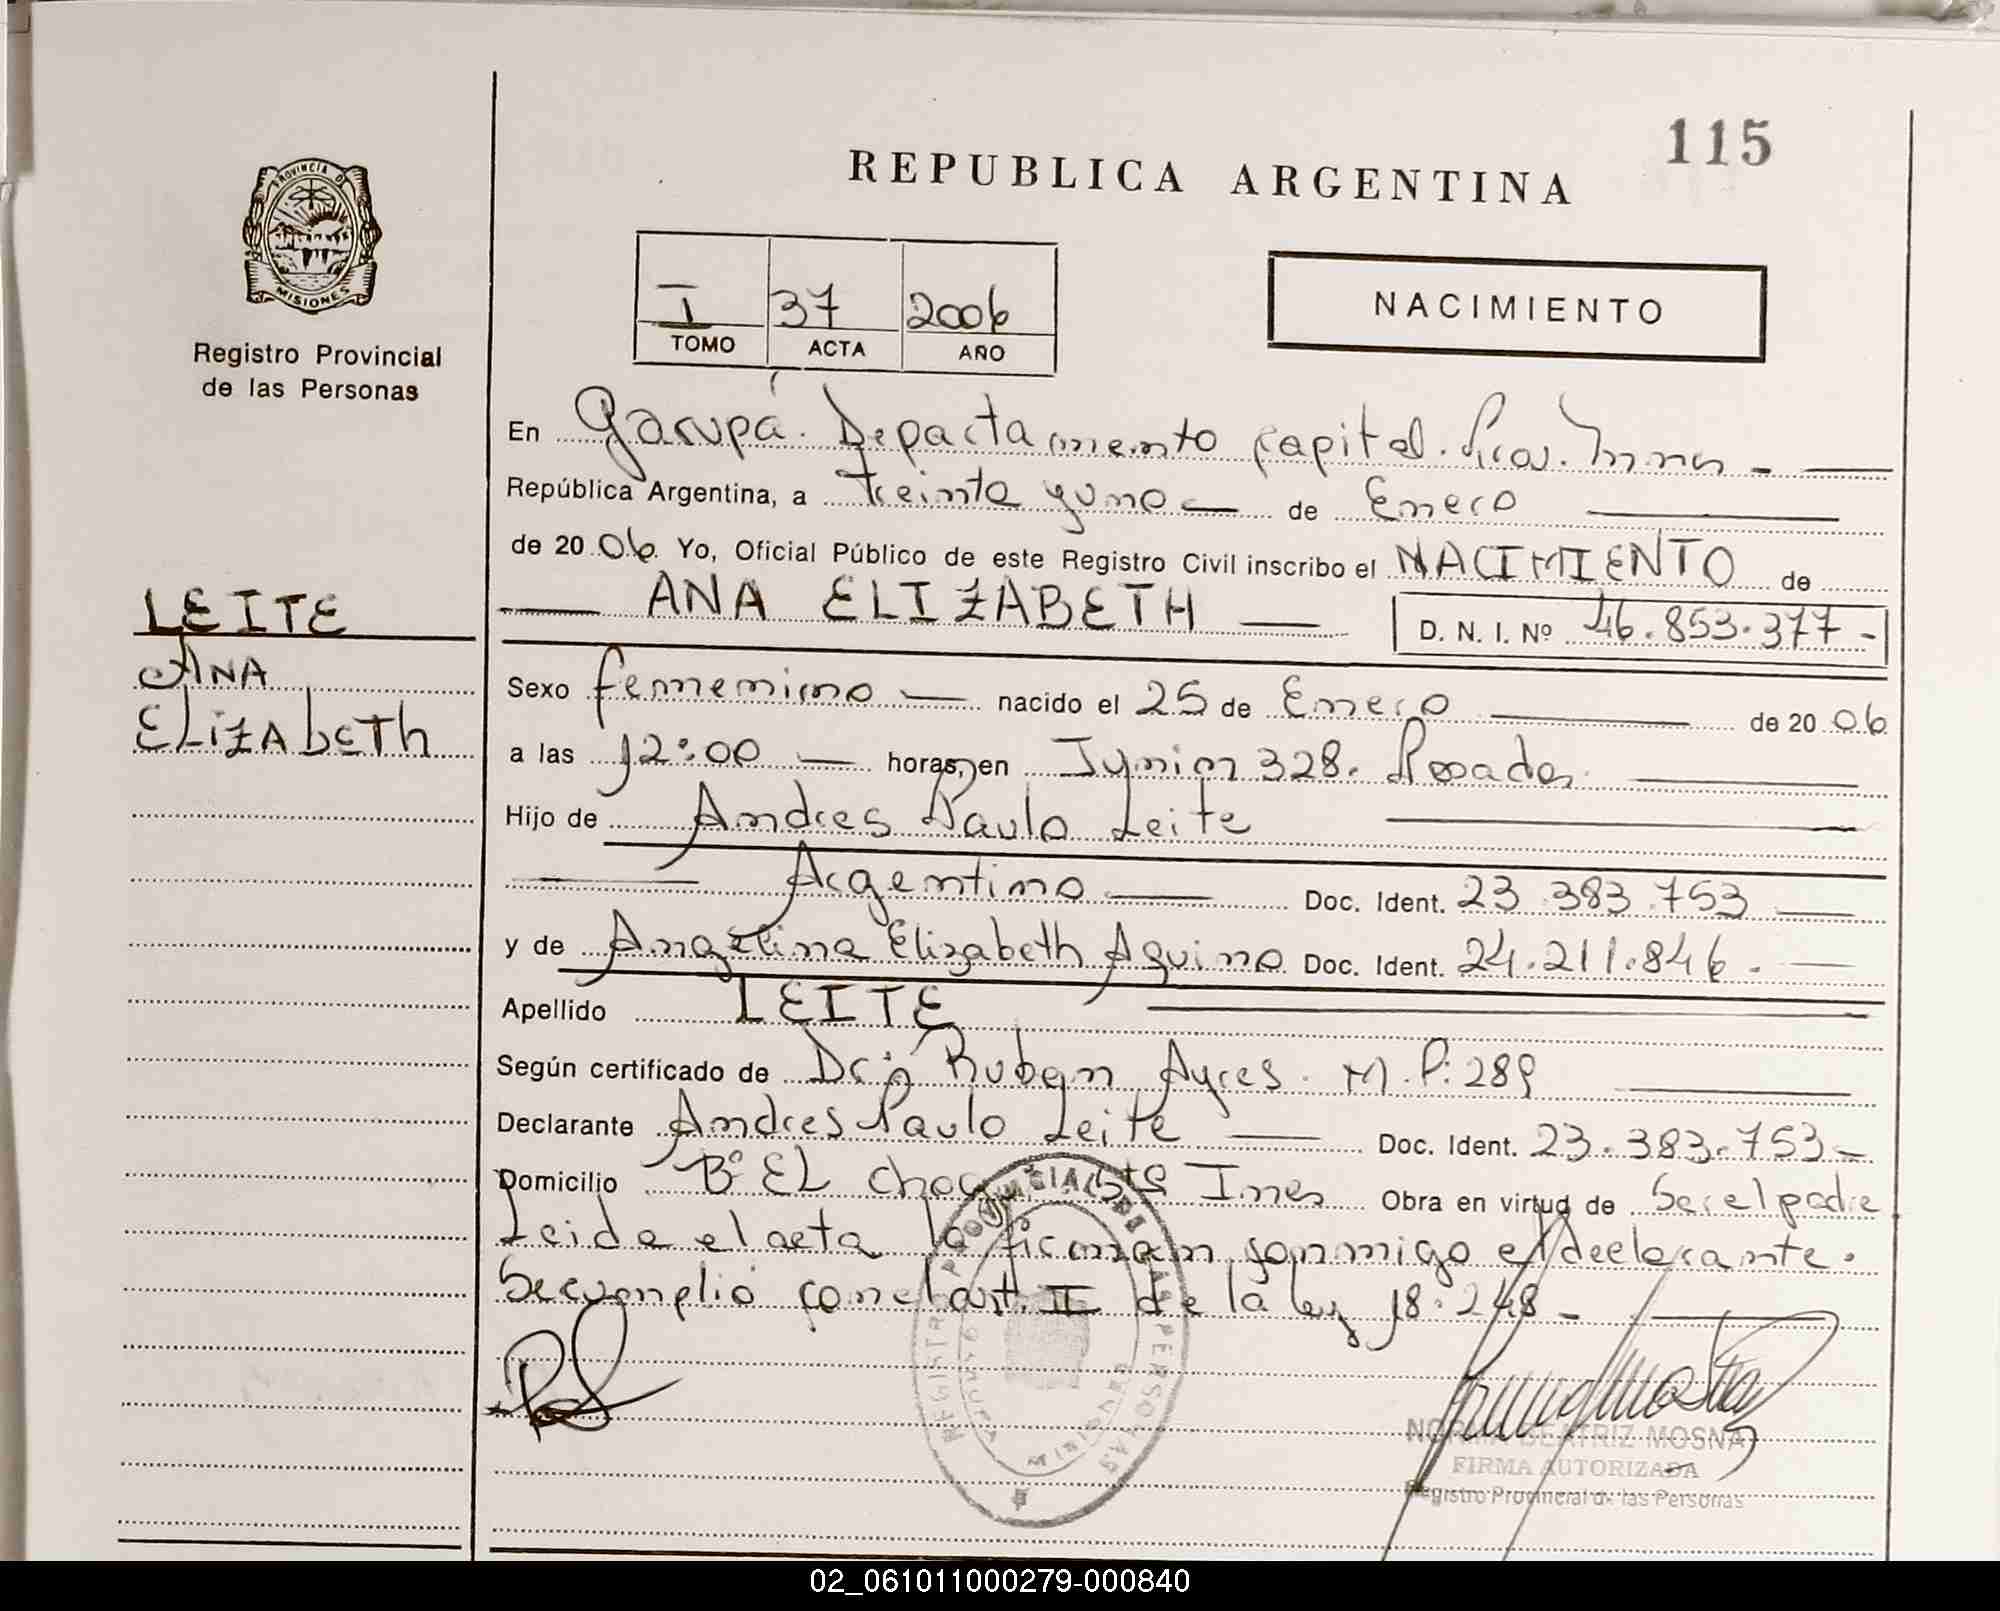 115
REPUBLICA ARGENTINA
PROVINCIA DE
MISIONES
Registro Provincial
de las Personas
I 37 2006
TOMO ACTA AÑO
NACIMIENTO
LEITE
ANA
Elizabeth
En Garupá. Departamento Capital. Prov. Mnes -
República Argentina, a treinta y uno de Enero
de 20 06. Yo, Oficial Público de este Registro Civil inscribo el NACIMIENTO de
ANA ELIZABETH D. N. I. Nº 46.853.377-
Sexo femenino nacido el 25 de Enero de 20 06
a las 12:00 horas, en Junin 328. Posadas.
Hijo de Andres Paulo Leite
Argentino Doc. Ident. 23.383.753
y de Angelina Elizabeth Aquino Doc. Ident. 24.211.846.-
Apellido LEITE
Según certificado de Dr: Ruben Ayres. M.P: 289
Declarante Andres Paulo Leite Doc. Ident. 23.383.753-
Domicilio Bº EL Sta Ines Obra en virtud de Ser el padre
Leida el acta la firman conmigo el declarante.
Se cumplió con el art. II de la ley 18.248-
REGISTRO PROVINCIAL DE LAS PERSONAS
GARUPA
MISIONES
NORMA BEATRIZ MOSNA
FIRMA AUTORIZADA
Registro Provincial de las Personas
02_061011000279-000840